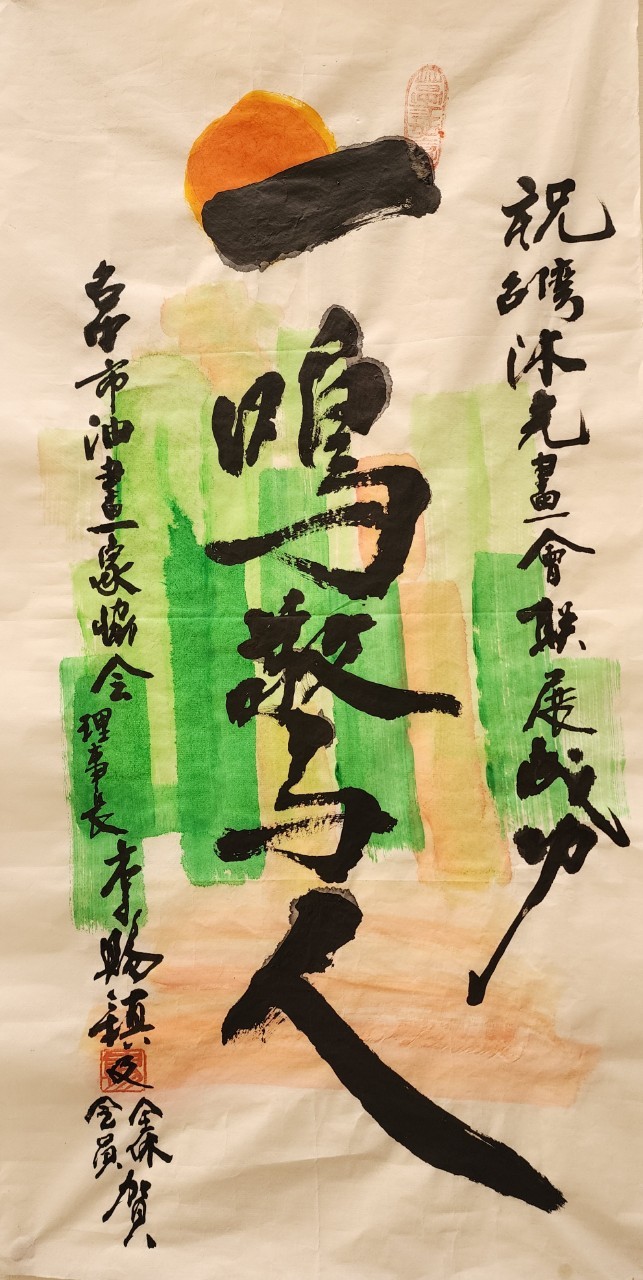 祝台灣沐光畫會联展成功
一鳴驚人
台中市油畫家協会理事長李賜鎮及
全体
会員
賀